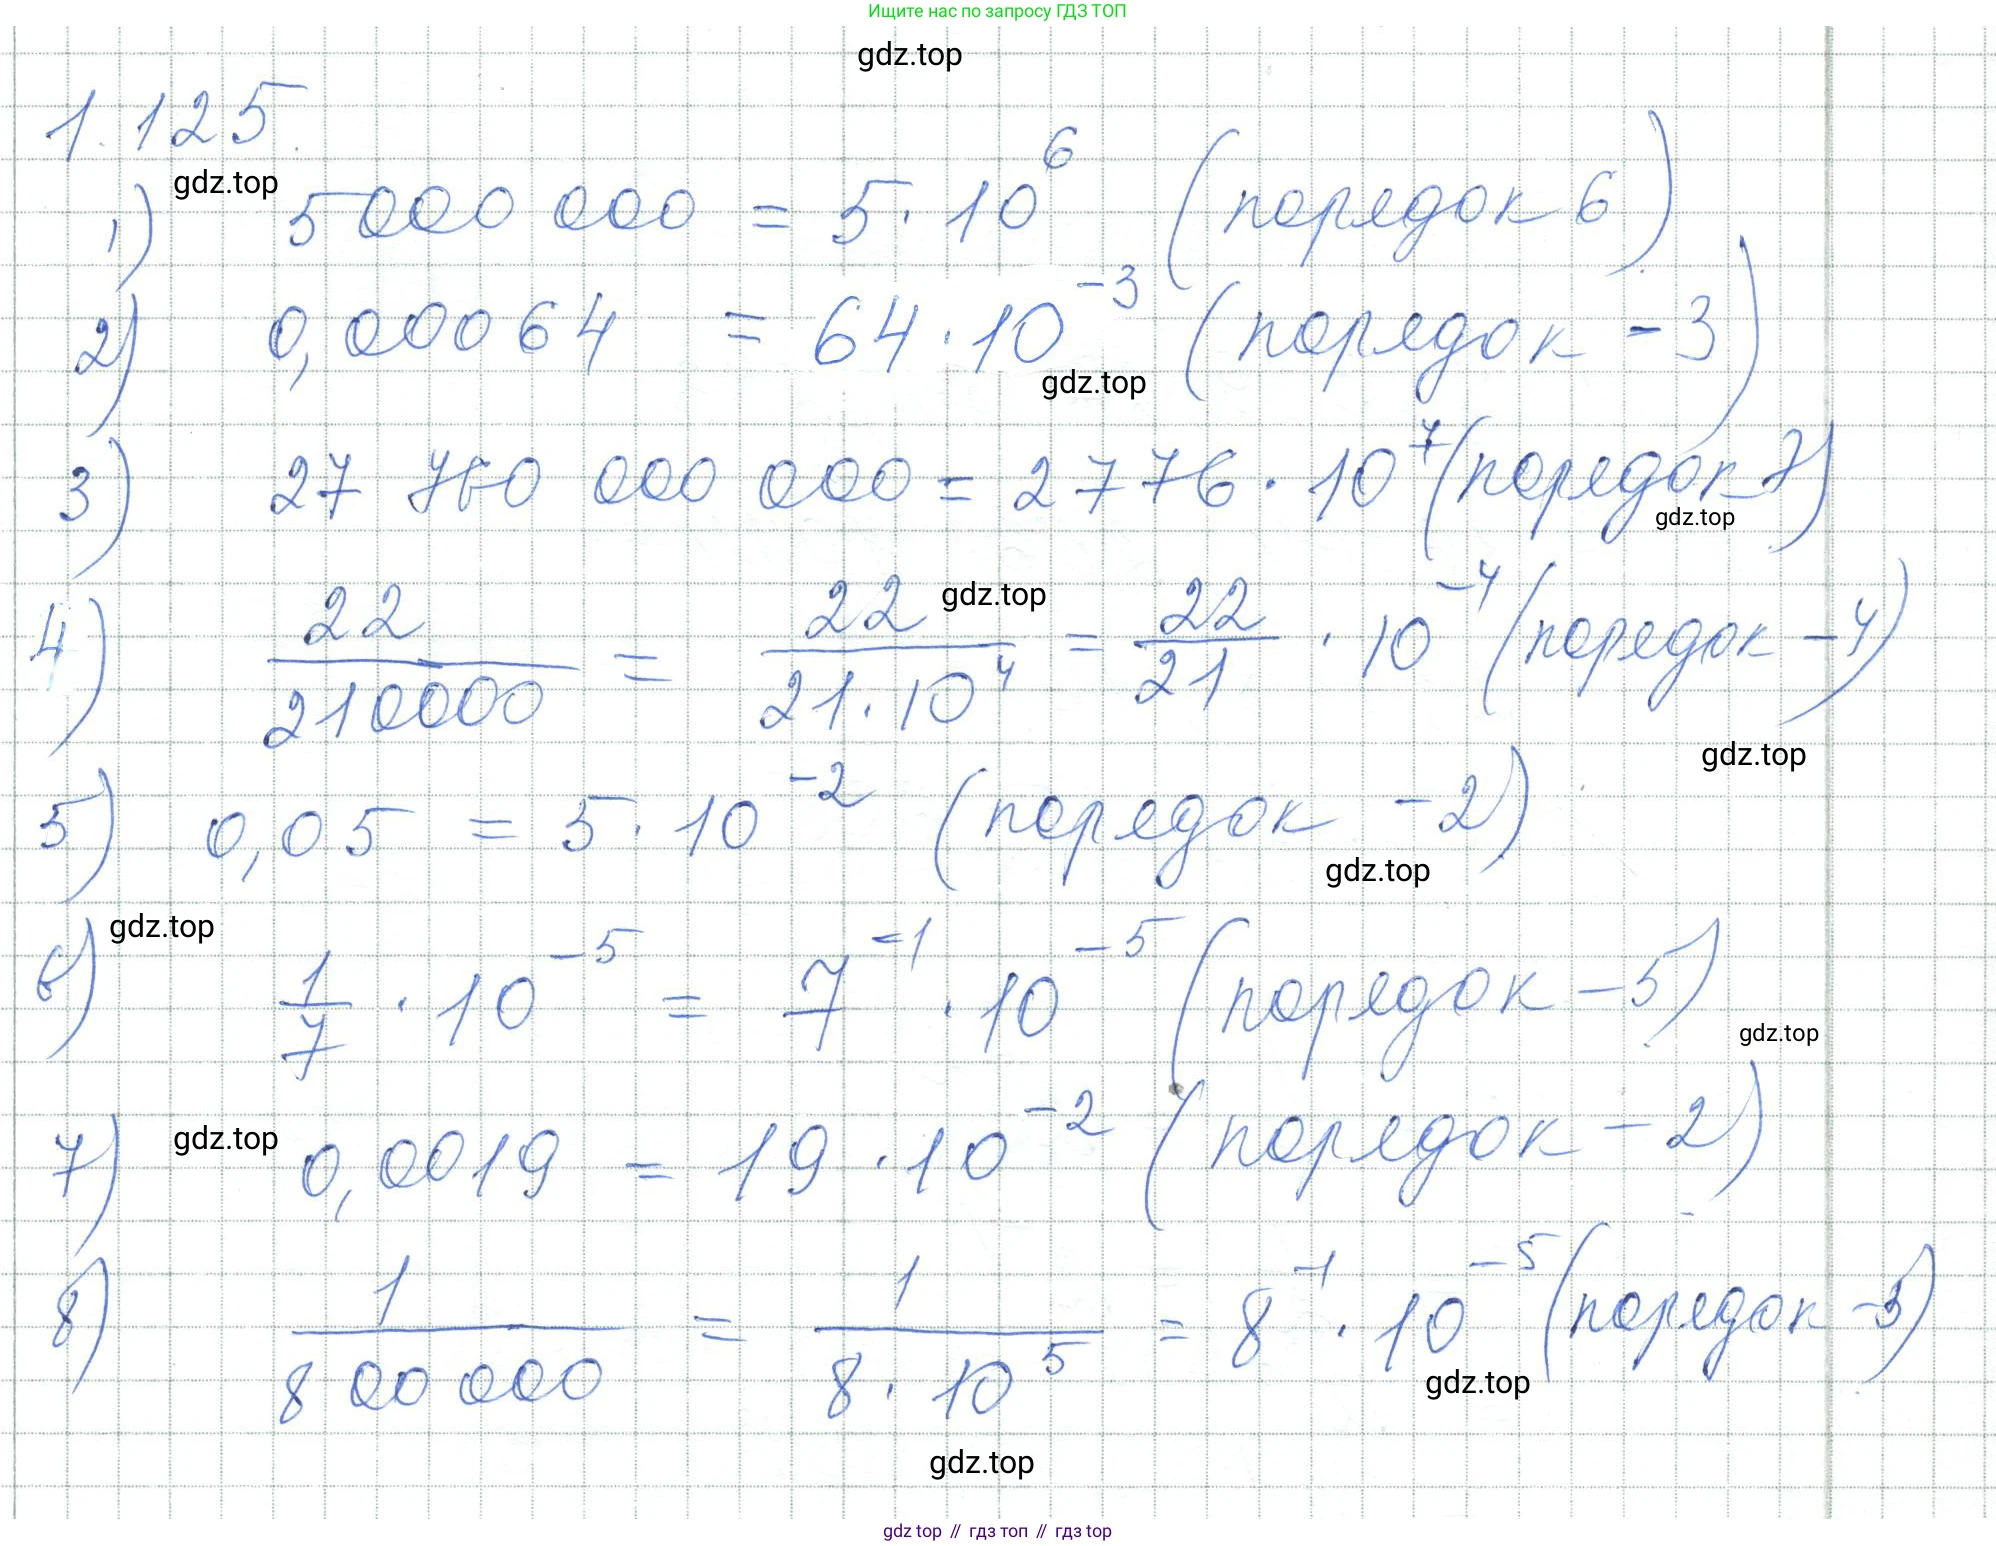 Ищите нас по запросу ГДЗ ТОП
gdz.top
1.125.
gdz.top
1) 5000 000 = 5 · 10^6 (порядок 6)
2) 0,00064 = 64 · 10^-3 (порядок -3)
gdz.top
3) 27 760 000 000 = 2776 · 10^7 (порядок 7)
gdz.top
gdz.top
4) 22/210000 = 22/(21 · 10^4) = 22/21 · 10^-4 (порядок -4)
gdz.top
5) 0,05 = 5 · 10^-2 (порядок -2)
gdz.top
gdz.top
6) 1/7 · 10^-5 = 7^-1 · 10^-5 (порядок -5)
gdz.top
7) 0,0019 = 19 · 10^-2 (порядок -2)
gdz.top
8) 1/800 000 = 1/(8 · 10^5) = 8^-1 · 10^-5 (порядок -3)
gdz.top
gdz.top
gdz top // гдз топ // gdz top